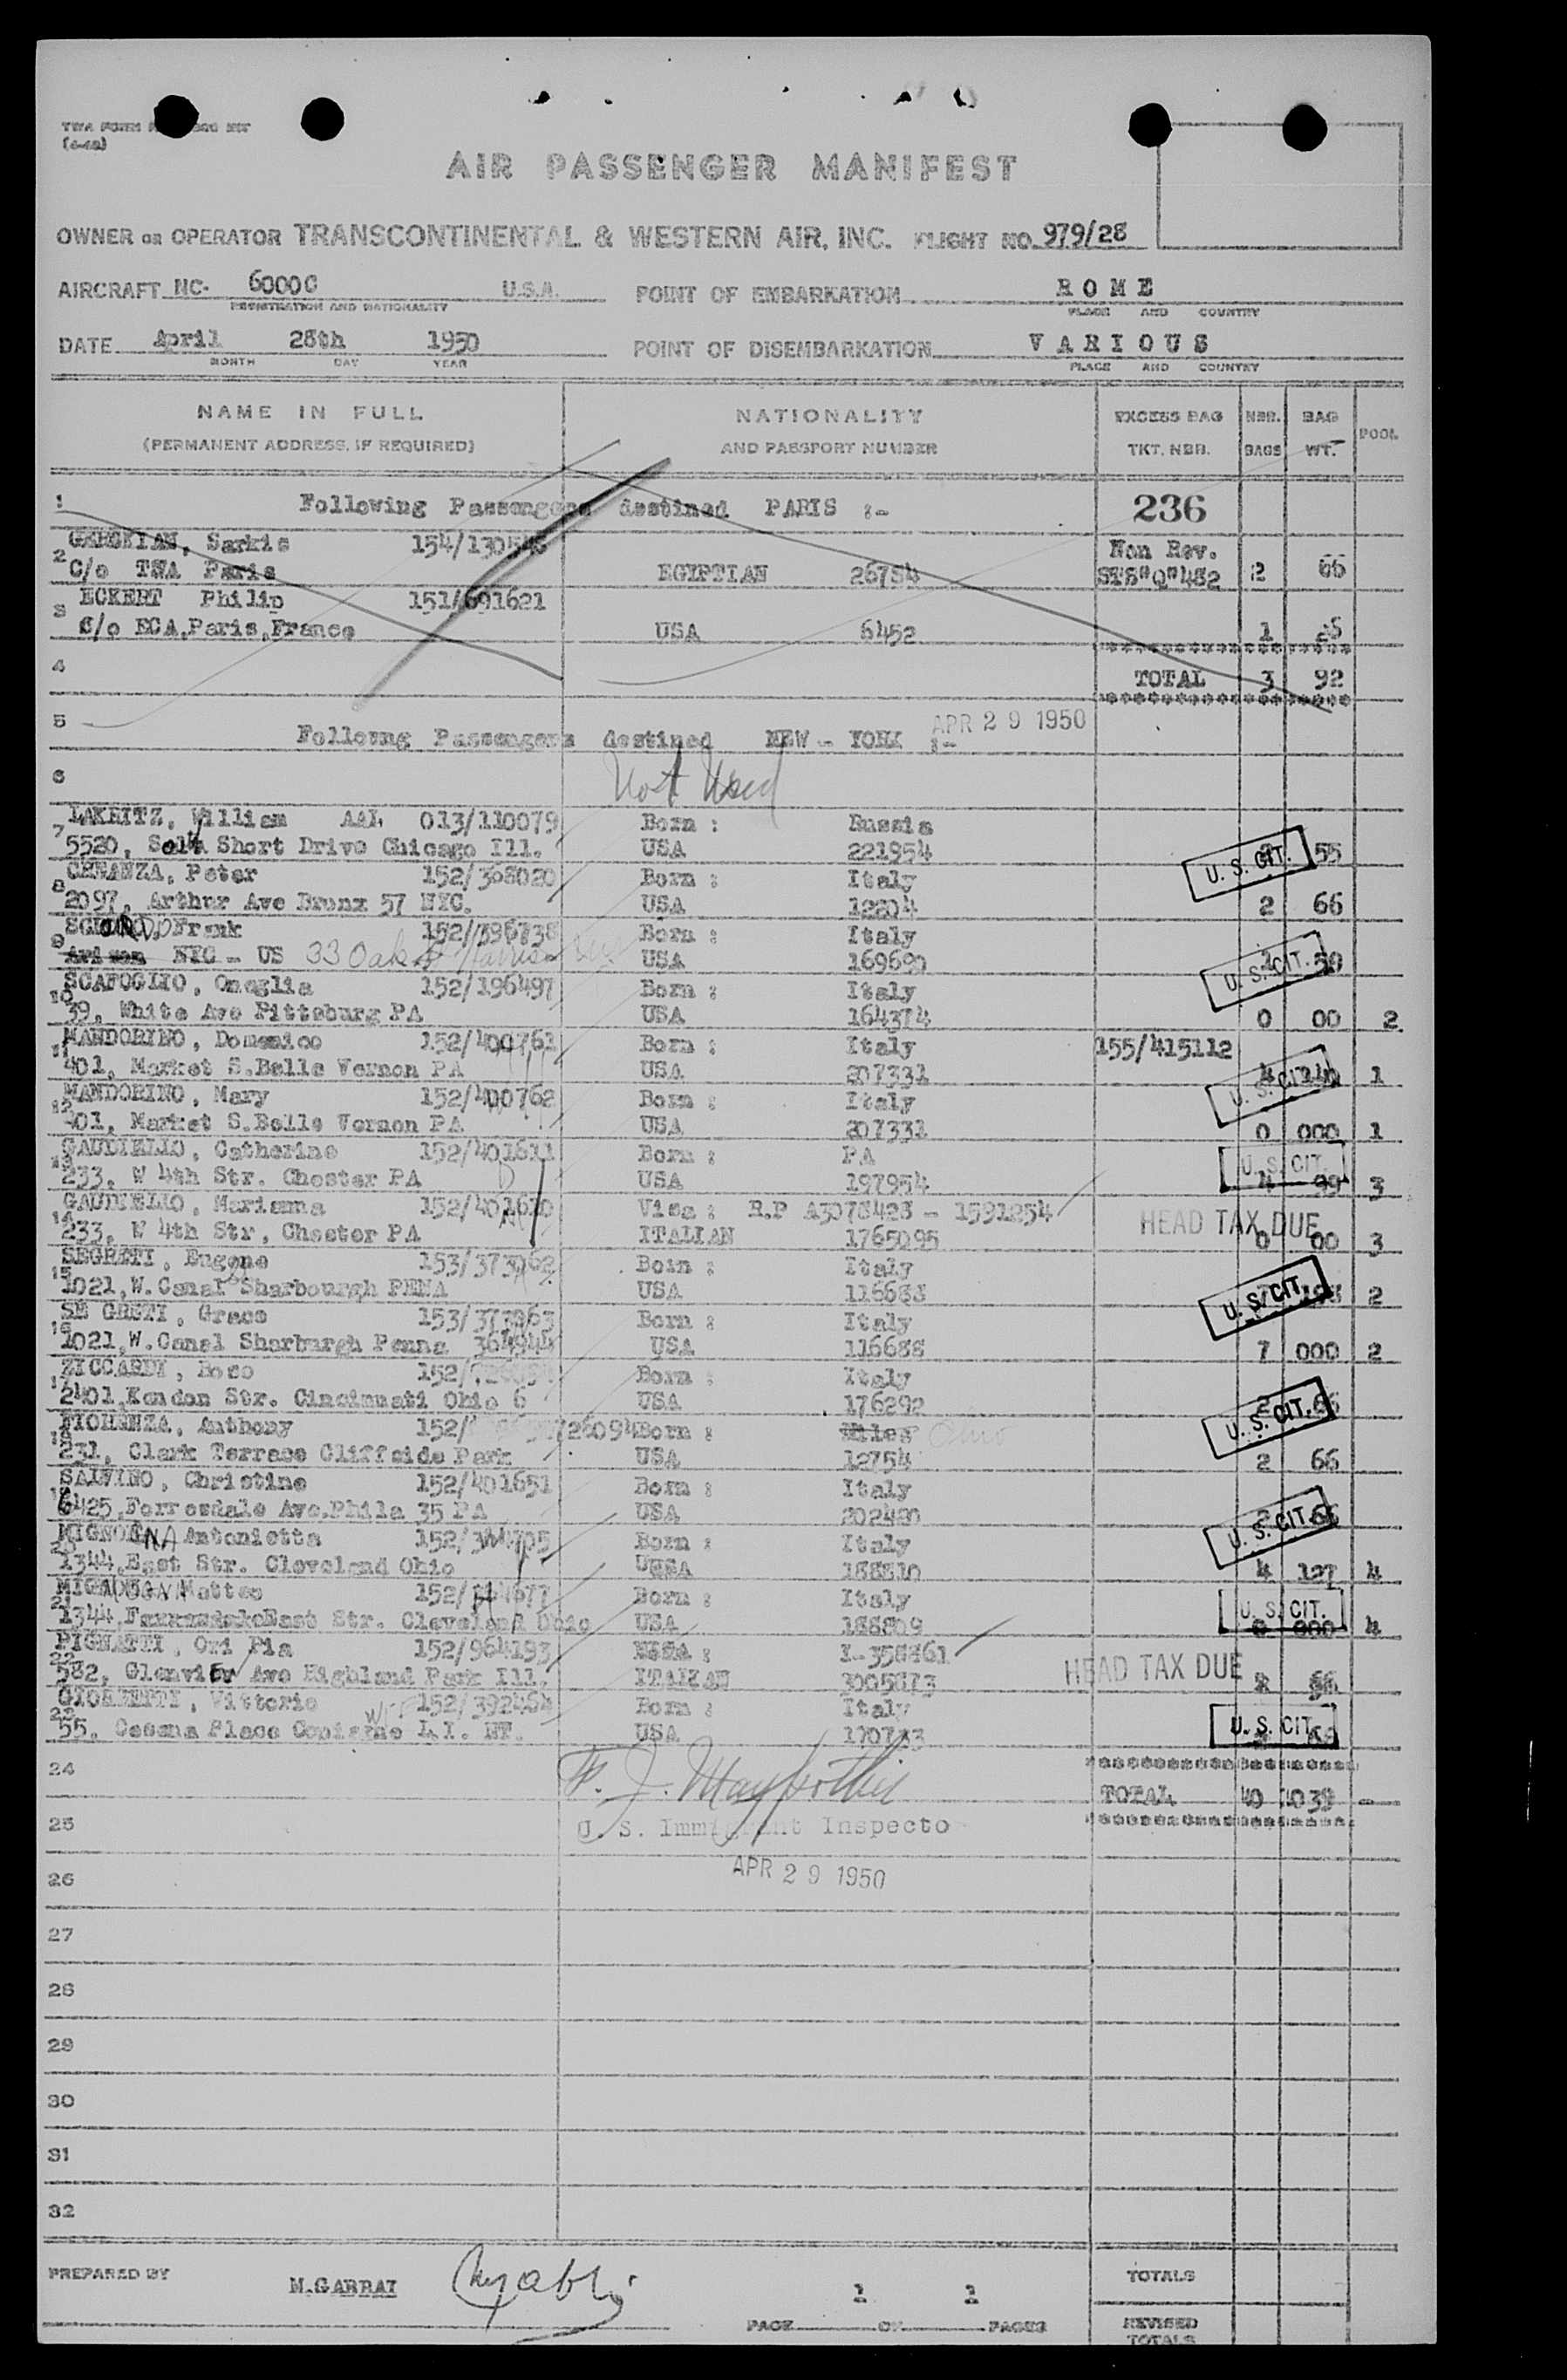 (4-48)
AIR PASSENGER MANIFEST
OWNER OR OPERATOR TRANSCONTINENTAL & WESTERN AIR, INC. FLIGHT NO. 979/28
AIRCRAFT NC- 6000C U.S.A. POINT OF EMBARKATION ROME
REGISTRATION AND NATIONALITY PLACE AND COUNTRY
DATE April 28th 1950 POINT OF DISEMBARKATION VARIOUS
MONTH DAY YEAR PLACE AND COUNTRY
NAME IN FULL NATIONALITY EXCESS BAG NBR. BAG POOL
(PERMANENT ADDRESS, IF REQUIRED) AND PASSPORT NUMBER TKT. NBR. BAGS WT.
1 Following Passengers destined PARIS :- 236
Sarkis Non Rev.
2 C/o TWA Paris EGIPTIAN 26754 STS"Q"482 2 66
ECKERT Philip 151/691621
3 C/o ECA,Paris,France USA 6452 1 26
4 TOTAL 3 92
5 Followng Passengers destined NEW - YORK :- APR 29 1950
6 Not Used
LAKRITZ, William AAL 013/110079 Born : Russia
7 5520, South Short Drive Chicago Ill. USA 221954 U. S. CIT. 55
CENANZA, Peter 152/368020 Born : Italy
8 2097, Arthur Ave Bronx 57 NYC. USA 12204 2 66
Frank Born : Italy
9 NYC - US 33 Oak USA U. S. CIT.
SCAFOGLIO, Oneglia 152/196497 Born : Italy
10 39, White Ave Pittsburg PA USA 164374 0 00 2
MANDORINO, Domenico 152/400761 Born : Italy 155/415112
11 401, Market S.Belle Vernon PA USA 207331 U. S. CIT. 1
MANDORINO, Mary 152/400762 Born : Italy
12 401, Market S.Belle Vernon PA USA 207331 0 000 1
GAUDIELLO, Catherine 152/401611 Born : PA
13 233, W 4th Str. Chester PA USA 197954 U. S. CIT. 4 99 3
GAUDIELLO, Marianna 152/401610 Visa : R.P A3078428 - 1591254
14 233, W 4th Str, Chester PA ITALIAN 1765095 HEAD TAX DUE 0 00 3
SEGRETI, Eugene 153/373962 Boin : Italy
15 1021,W.Canal Sharbourgh PENA USA 116688 U. S. CIT. 2
SE GRETI, Grace 153/373963 Born : Italy
16 1021,W.Canal Sharburgh Penna 364944 USA 116688 7 000 2
ZICCARDI, Roso 152/ Born : Italy
17 2401,Kendon Str. Cincinnati Ohio 6 USA 176292 2 66 U. S. CIT.
FIORENZA, Anthony 152/ 726094 Born : Ohio
18 231, Clark Terrace Cliffside Park USA 12754 2 66
SALVINO, Christine 152/401651 Born : Italy
19 6425,Forresdale Ave.Phila 35 PA USA 202420 2 66 U. S. CIT.
Antonietta Born : Italy
20 1344,East Str. Cleveland Ohio USA 188810 4 127 4
Matteo Born : Italy
21 1344 East Str. Cleveland Ohio USA 188809 U. S. CIT. 0 000 4
PIGNATTI, Ori Pia 152/964193 VISA : I-358861
22 582, Glenview Ave Highland Park Ill. ITALIAN 3005873 HEAD TAX DUE
GIORZETTI, Vittorio 152/392464 Born : Italy
23 55, Cesena Place Copiague L.I. NY. USA 170733 U. S. CIT.
24 TOTAL 40 1039 -
25 U. S. Immigrant Inspecto
26 APR 29 1950
27
28
29
30
31
32
PREPARED BY M.GABBAI 1 1 TOTALS
PAGE OF PAGES REVISED
TOTALS